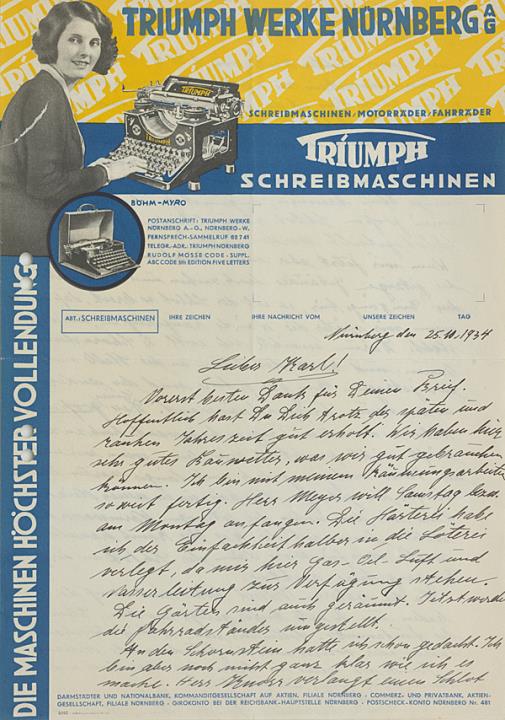 TRIUMPH WERKE NÜRNBERG AG
TRIUMPH
SCHREIBMASCHINEN/MOTORRÄDER/FAHRRÄDER
TRIUMPH
SCHREIBMASCHINEN
BÖHM-MYRO
POSTANSCHRIFT: TRIUMPH WERKE
NÜRNBERG A.-G., NÜRNBERG-W.
FERNSPRECH-SAMMELRUF 62741
TELEGR.-ADR.: TRIUMPH NÜRNBERG
RUDOLF MOSSE CODE - SUPPL.
ABC CODE 5th EDITION FIVE LETTERS
ABT.: SCHREIBMASCHINEN IHRE ZEICHEN IHRE NACHRICHT VOM UNSERE ZEICHEN TAG
DIE MASCHINEN HÖCHSTER VOLLENDUNG
Nürnberg den 25.10.1934
Lieber Karl!
Vorerst besten Dank für Deinen Brief.
Hoffentlich hast Du Dich trotz der späten und
rauhen Jahreszeit gut erholt. Wir haben hier
sehr gutes Bauwetter, was wir gut gebrauchen
können. Ich bin mit meinem Räumungsarbeiten
soweit fertig. Herr Meyer will Samstag bezw.
am Montag anfangen. Die Härterei habe
ich der Einfachheit halber in die Löterei
verlegt, da mir hier Gas-Oel-Luft und
Wasserleitung zur Verfügung stehen.
Die Gärten sind auch geräumt. Jetzt werden
die Fahrradständer umgestellt.
An den Schornstein hatte ich schon gedacht. Ich
bin aber noch nicht ganz klar wie ich es
mache. Herr verlangt einen Schlot
DARMSTÄDTER UND NATIONALBANK, KOMMANDITGESELLSCHAFT AUF AKTIEN, FILIALE NÜRNBERG - COMMERZ- UND PRIVATBANK, AKTIEN-
GESELLSCHAFT, FILIALE NÜRNBERG - GIROKONTO BEI DER REICHSBANK-HAUPTSTELLE NÜRNBERG - POSTSCHECK-KONTO NÜRNBERG Nr. 481